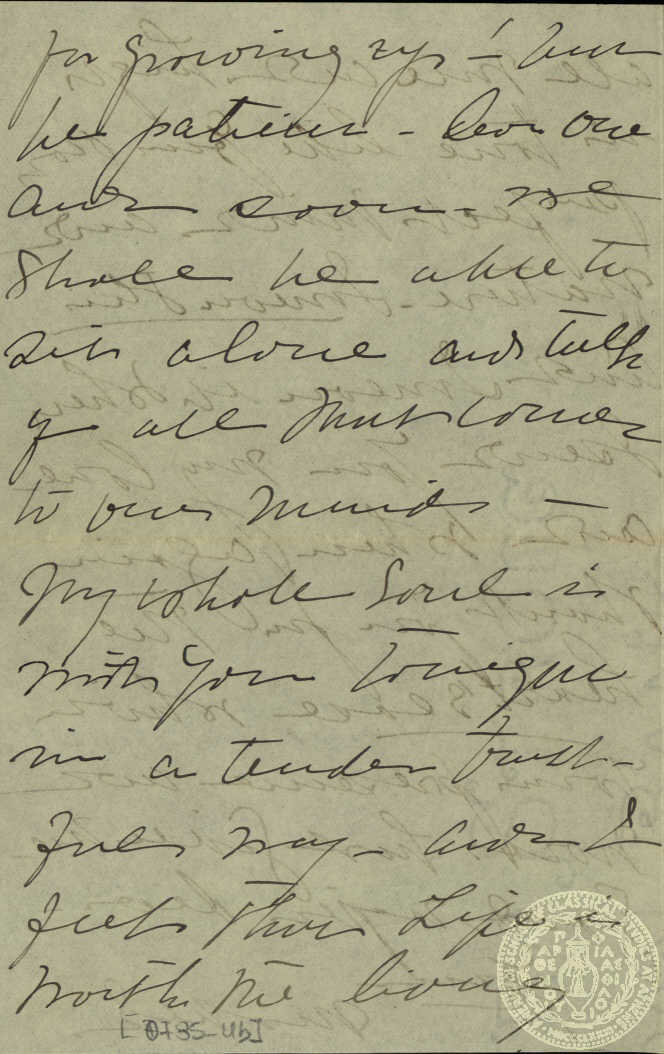 for growing up! but
be patient - love one
and soon - we
shall be able to
sit alone and talk
of all that comes
to our minds —
My whole Soul is
with you tonight
in a tender trust-
ful way - and I
feel that Life is
worth the living
[0785-4b]